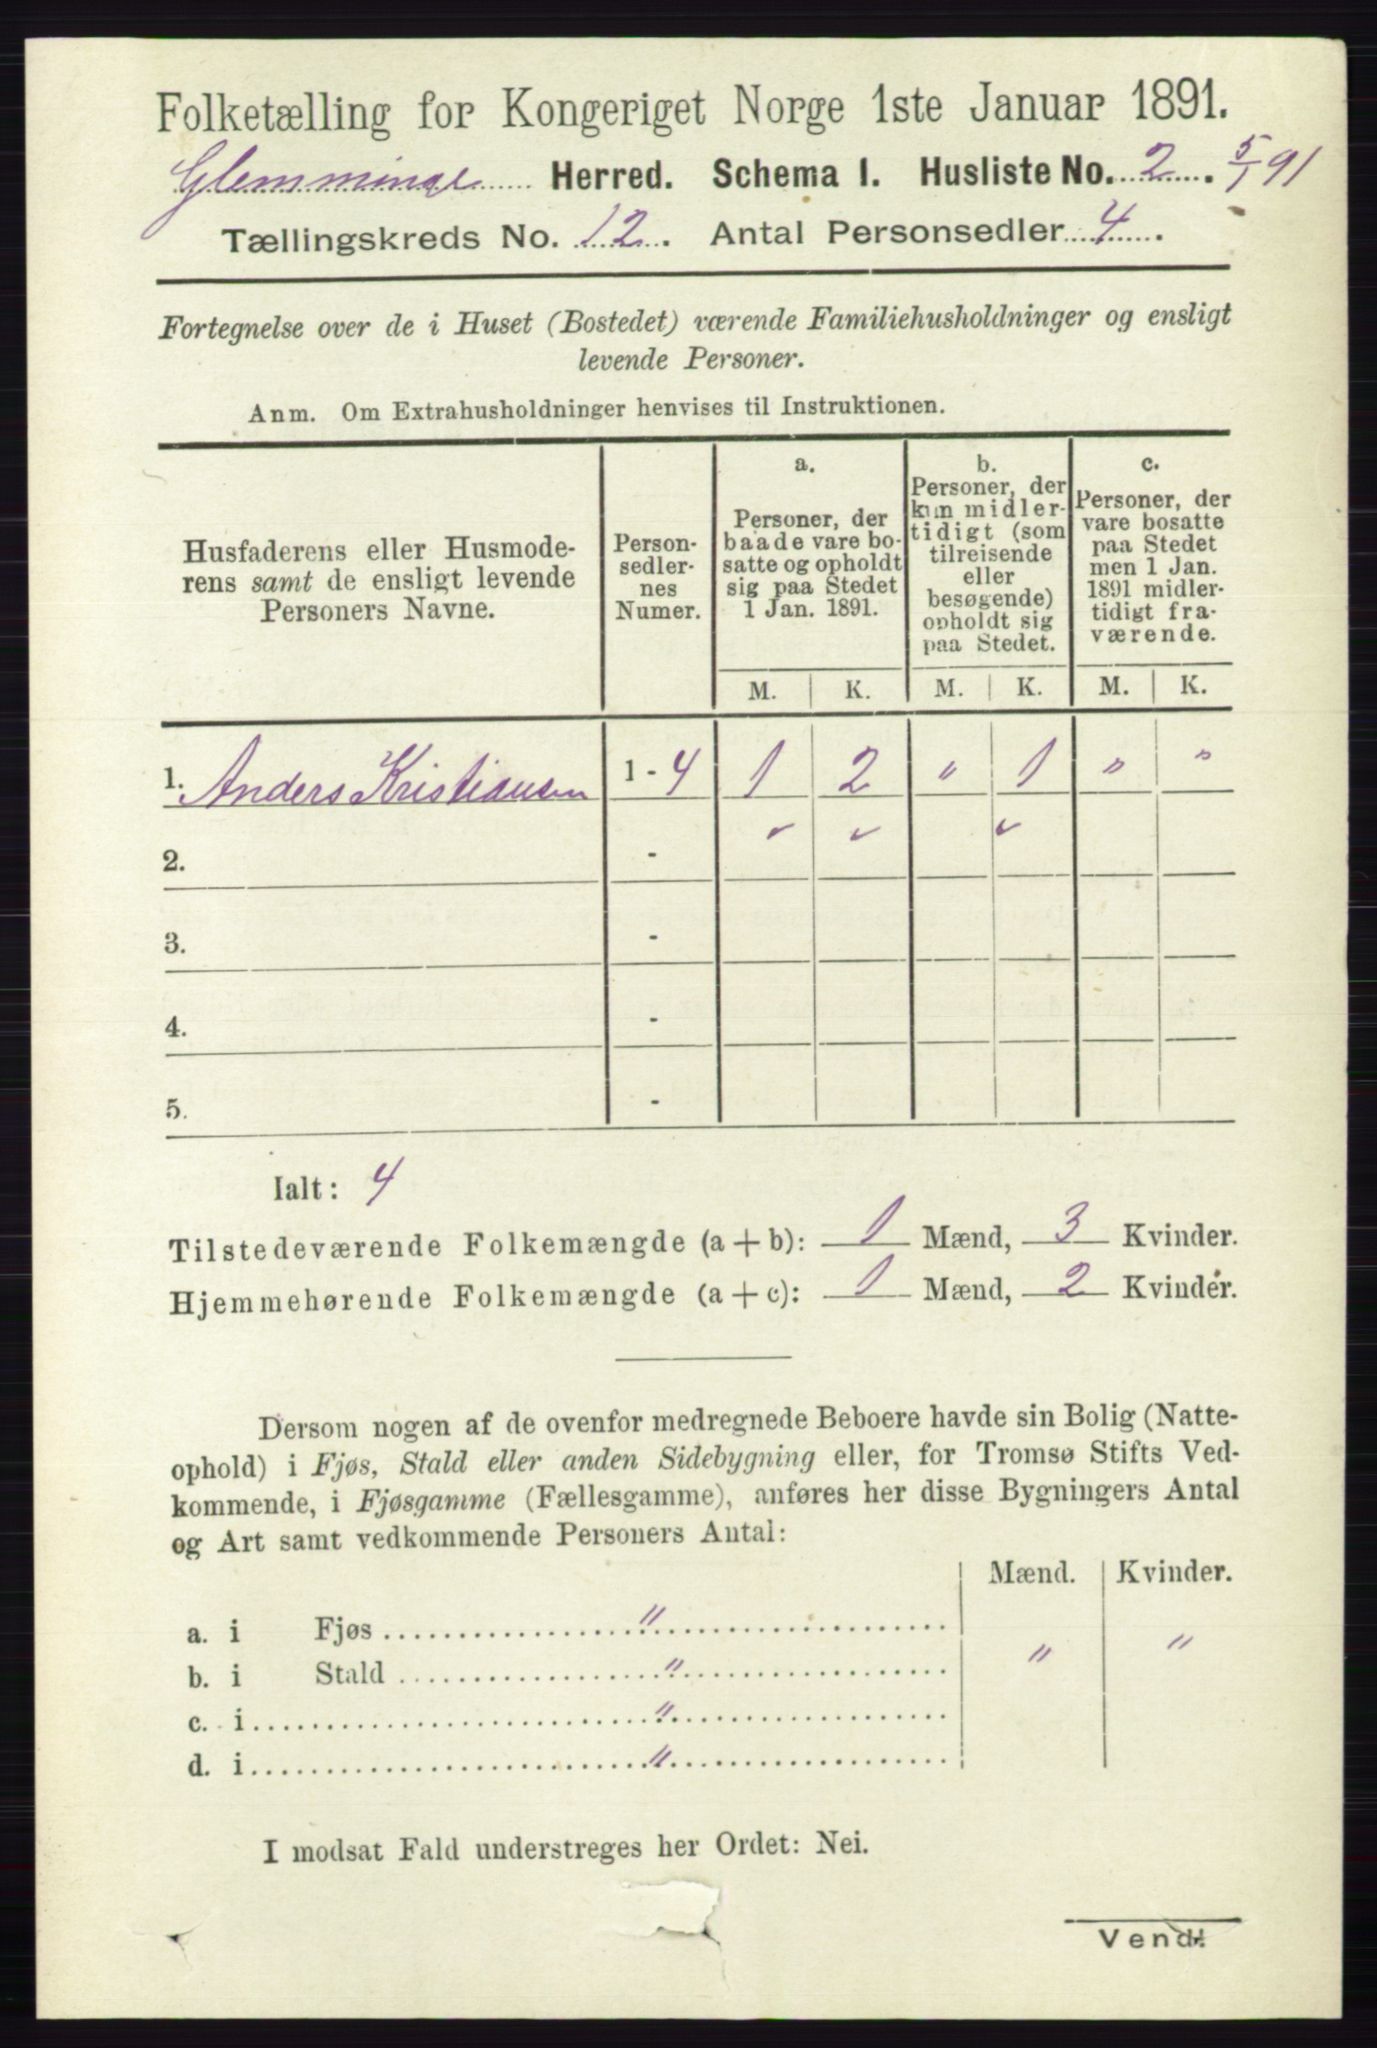 Folketælling for Kongeriget Norge 1ste Januar 1891.
Glemminge Herred. Schema I. Husliste No. 2. 5/1 91
Tællingskreds No. 12. Antal Personsedler 4.
Fortegnelse over de i Huset (Bostedet) værende Familiehusholdninger og ensligt
levende Personer.
Anm. Om Extrahusholdninger henvises til Instruktionen.
Husfaderens eller Husmode-
rens samt de ensligt levende
Personers Navne.
Person-
sedler-
nes
Numer.
a.
Personer, der
baade vare bo-
satte og opholdt
sig paa Stedet
1 Jan. 1891.
b.
Personer, der
kun midler-
tidigt (som
tilreisende
eller
besøgende)
opholdt sig
paa Stedet.
c.
Personer, der
vare bosatte
paa Stedet
men 1 Jan.
1891 midler-
tidigt fra-
værende.
M. K. M. K. M. K.
1. Anders Kristiansen 1 - 4 1 2 " 1 " "
2. - ✓ ✓ ✓
3. -
4. -
5. -
Ialt: 4
Tilstedeværende Folkemængde (a + b): 1 Mænd, 3 Kvinder.
Hjemmehørende Folkemængde (a + c): 1 Mænd, 2 Kvinder.
Dersom nogen af de ovenfor medregnede Beboere havde sin Bolig (Natte-
ophold) i Fjøs, Stald eller anden Sidebygning eller, for Tromsø Stifts Ved-
kommende, i Fjøsgamme (Fællesgamme), anføres her disse Bygningers Antal
og Art samt vedkommende Personers Antal:
Mænd. Kvinder.
a. i Fjøs "
b. i Stald " " "
c. i "
d. i "
I modsat Fald understreges her Ordet: Nei.
Vend!